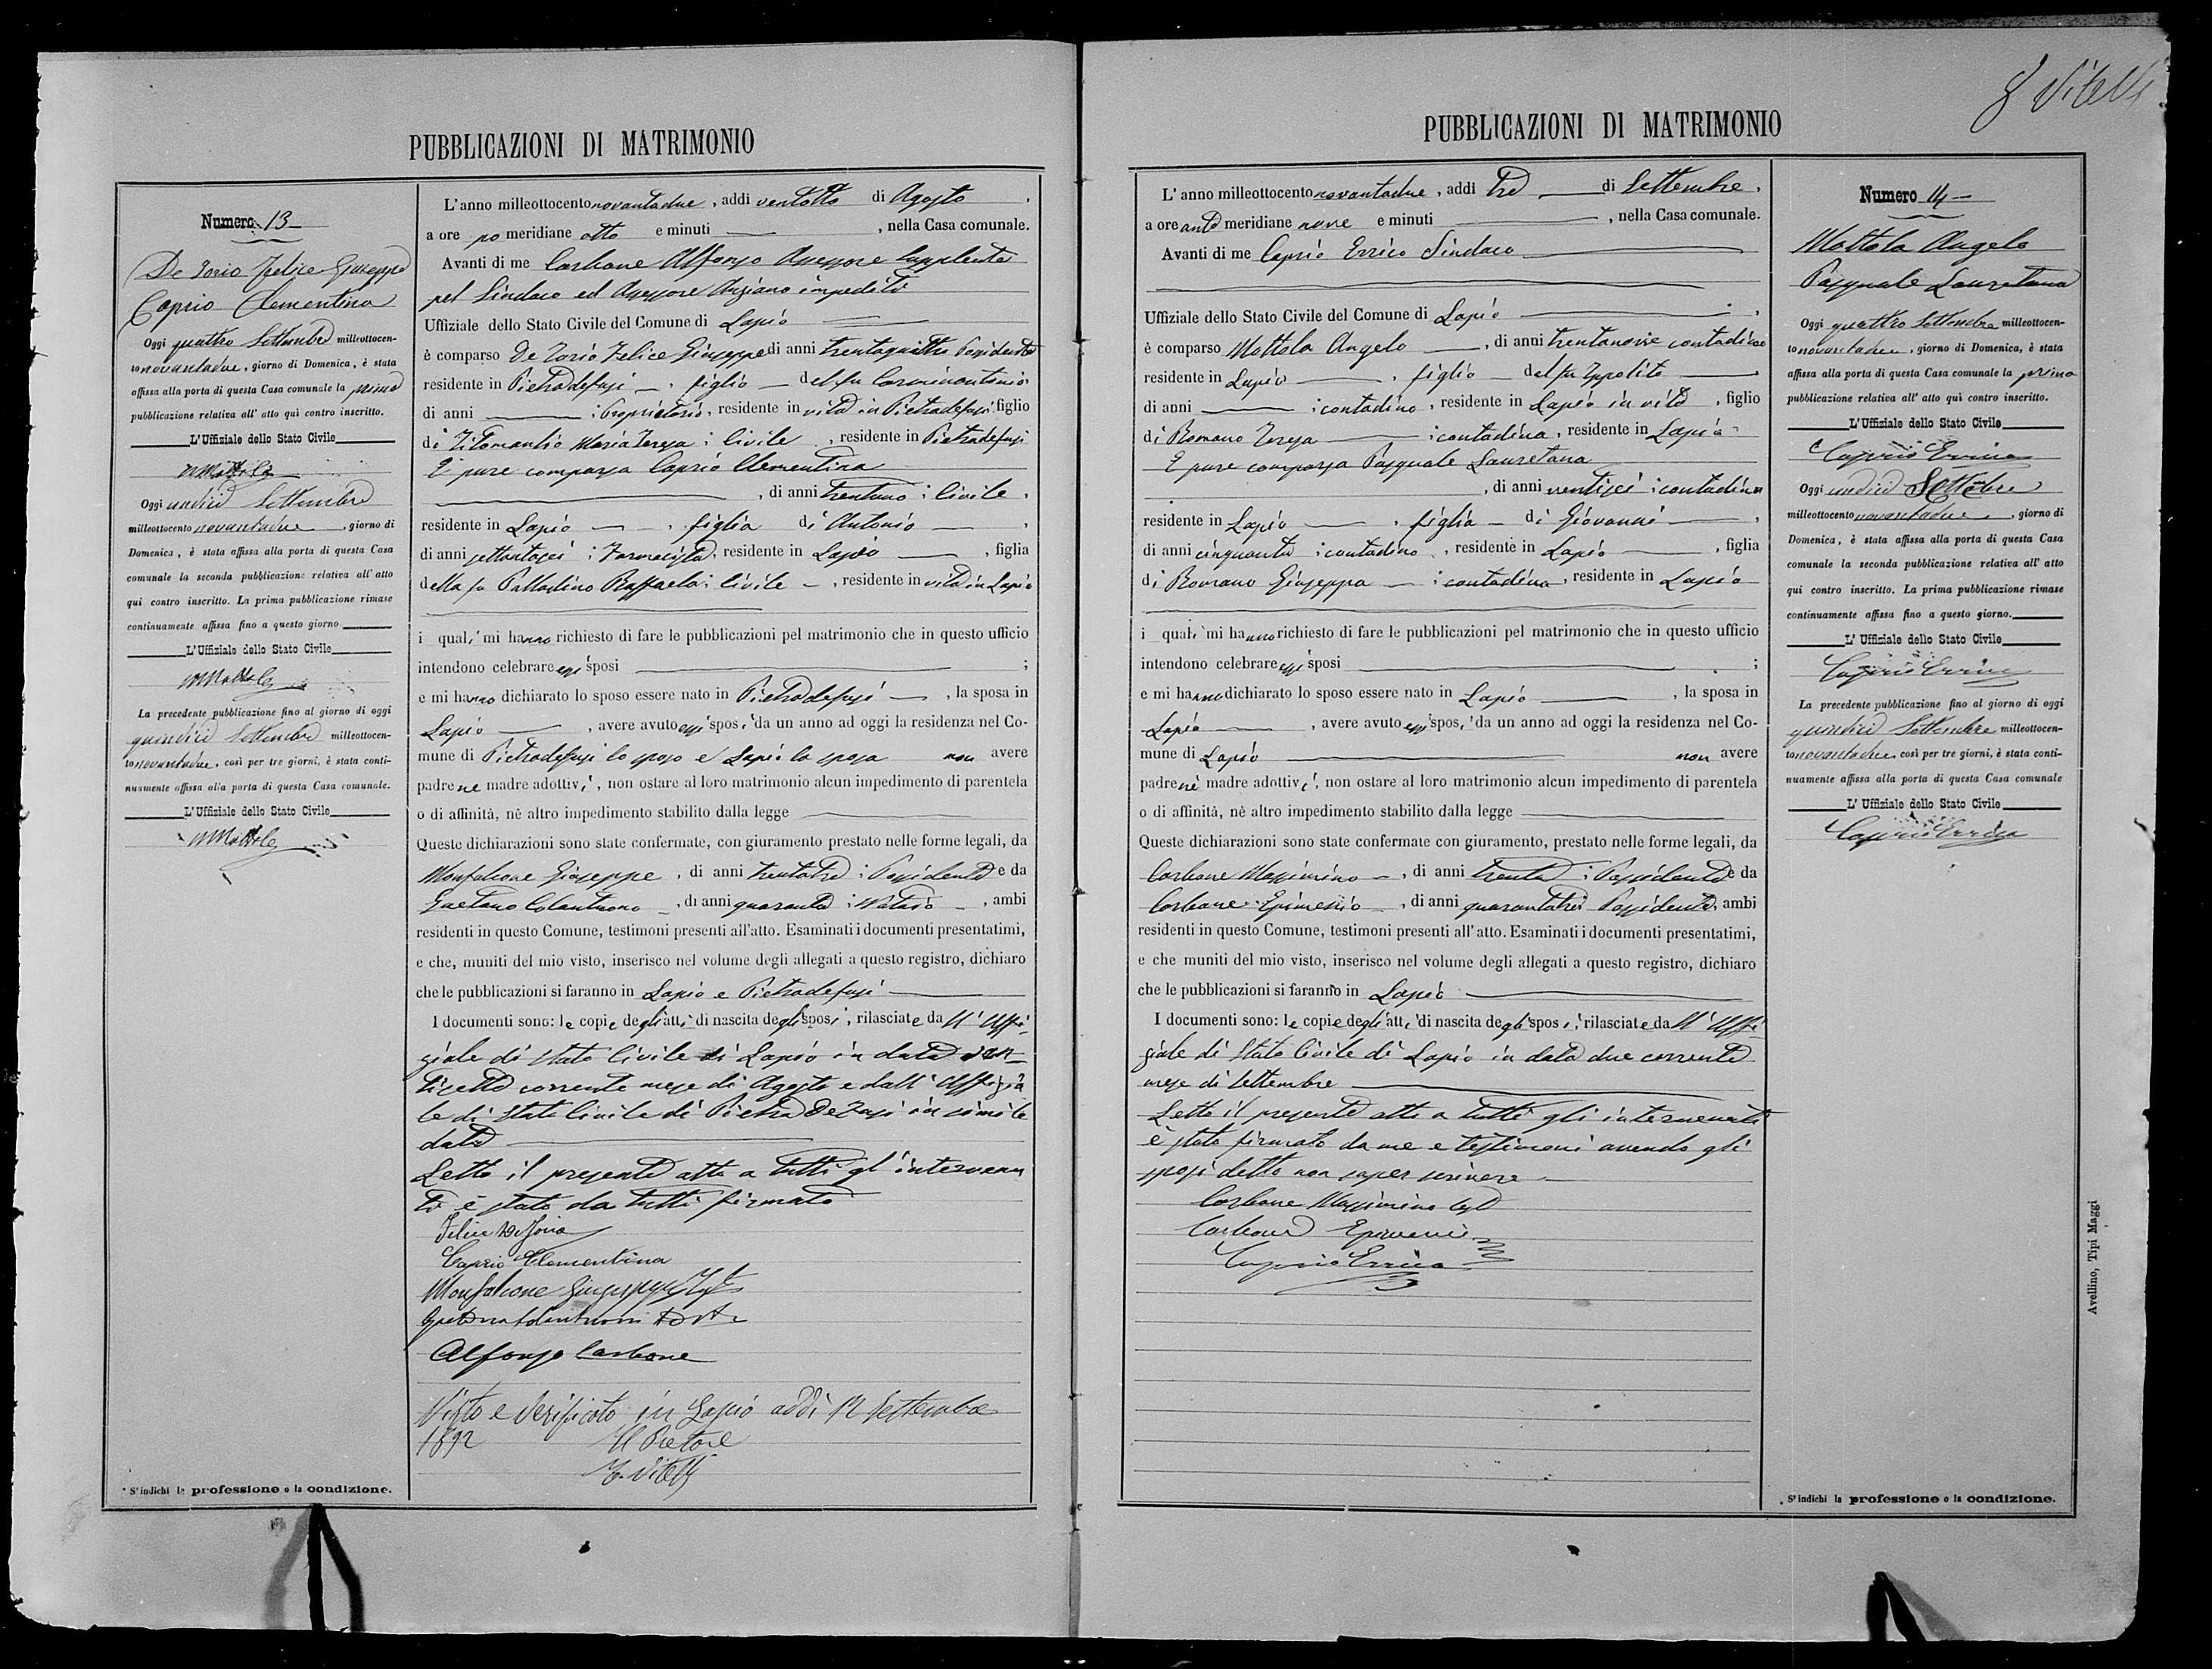 PUBBLICAZIONI DI MATRIMONIO
Numero 13
De Iorio Felice Giuseppe
Caprio Clementina
Oggi quattro Settembre milleottocen-
to novantadue, giorno di Domenica, è stata
affissa alla porta di questa Casa comunale la prima
pubblicazione relativa all' atto quì contro inscritto.
L'Uffiziale dello Stato Civile
Oggi undici Settembre
milleottocento novantadue, giorno di
Domenica, è stata affissa alla porta di questa Casa
comunale la seconda pubblicazione relativa all' atto
qui contro inscritto. La prima pubblicazione rimase
continuamente affissa fino a questo giorno.
L' Uffiziale dello Stato Civile
La precedente pubblicazione fino al giorno di oggi
quindici Settembre milleottocen-
to novantadue, così per tre giorni, è stata conti-
nuamente affissa alla porta di questa Casa comunale.
L'Uffiziale dello Stato Civile
* S' indichi la professione o la condizione.
L' anno milleottocento novantadue, addi ventotto di Agosto,
a ore po meridiane otto e minuti —, nella Casa comunale.
Avanti di me Carbone Alfonso Assessore Supplente
pel Sindaco ed Assessore Anziano impedito
Uffiziale dello Stato Civile del Comune di Lapio
è comparso De Iorio Felice Giuseppe di anni trentaquattro Possidente
residente in Pietradefusi —, figlio — del fu Carminantonio
di anni — ; Proprietario, residente in vita in Pietradefusi figlio
di Titomanlio Maria Teresa ; Civile, residente in Pietradefusi
E pure comparsa Caprio Clementina
, di anni trentuno ; Civile,
residente in Lapio —, figlia di Antonio —,
di anni settantasei ; Farmacista, residente in Lapio —, figlia
della fu Palladino Raffaela ; Civile —, residente in vita in Lapio
i quali mi hanno richiesto di fare le pubblicazioni pel matrimonio che in questo ufficio
intendono celebrare essi sposi — ;
e mi hanno dichiarato lo sposo essere nato in Pietradefusi —, la sposa in
Lapio —, avere avuto essi sposi da un anno ad oggi la residenza nel Co-
mune di Pietradefusi lo sposo e Lapio la sposa non avere
padre nè madre adottivi, non ostare al loro matrimonio alcun impedimento di parentela
o di affinità, nè altro impedimento stabilito dalla legge
Queste dichiarazioni sono state confermate, con giuramento prestato nelle forme legali, da
Monfalcone Giuseppe, di anni trentatre ; Possidente e da
Gaetano Colantuono —, di anni quaranta ; Notaio —, ambi
residenti in questo Comune, testimoni presenti all'atto. Esaminati i documenti presentatimi,
e che, muniti del mio visto, inserisco nel volume degli allegati a questo registro, dichiaro
che le pubblicazioni si faranno in Lapio e Pietradefusi
I documenti sono: le copie degli atti di nascita degli sposi, rilasciate da ll' Uffi-
ziale di Stato Civile di Lapio in data ven-
tisette corrente mese di Agosto e dall' Uffizia
le di Stato Civile di Pietra De Fusi in simile
data
Letto il presente atto a tutti gl' intervenu
ti è stato da tutti firmato
Felice De Iorio
Caprio Clementina
Monfalcone Giuseppe Test
Gaetano Colantuoni Test
Alfonso Carbone
Visto e Verificato in Lapio addì 12 Settembre
1892 Il Pretore
Vitelli
Vitelli
PUBBLICAZIONI DI MATRIMONIO
L' anno milleottocento novantadue, addi tre — di Settembre,
a ore anti meridiane nove e minuti —, nella Casa comunale.
Avanti di me Caprio Errico Sindaco
Uffiziale dello Stato Civile del Comune di Lapio
è comparso Mottola Angelo —, di anni trentanove contadino
residente in Lapio —, figlio — del fu Ippolito —
di anni — ; contadino, residente in Lapio in vita, figlio
di Romano Teresa — ; contadina, residente in Lapio
E pure comparsa Pasquale Lauretana
, di anni ventisei ; contadina
residente in Lapio —, figlia — di Giovanni —,
di anni cinquanta ; contadino, residente in Lapio —, figlia
di Romano Giuseppa — ; contadina, residente in Lapio
i quali mi hanno richiesto di fare le pubblicazioni pel matrimonio che in questo ufficio
intendono celebrare essi sposi — ;
e mi hanno dichiarato lo sposo essere nato in Lapio —, la sposa in
Lapio —, avere avuto essi sposi da un anno ad oggi la residenza nel Co-
mune di Lapio — non avere
padre nè madre adottivi, non ostare al loro matrimonio alcun impedimento di parentela
o di affinità, nè altro impedimento stabilito dalla legge
Queste dichiarazioni sono state confermate con giuramento, prestato nelle forme legali, da
Carbone Massimino —, di anni trenta ; Possidente e da
Carbone Epimenio —, di anni quarantatre Possidente, ambi
residenti in questo Comune, testimoni presenti all' atto. Esaminati i documenti presentatimi,
e che muniti del mio visto, inserisco nel volume degli allegati a questo registro, dichiaro
che le pubblicazioni si faranno in Lapio
I documenti sono: le copie degli atti di nascita degli sposi, rilasciate da ll' Uffi-
ziale di Stato Civile di Lapio in data due corrente
mese di Settembre
Letto il presente atto a tutti gli intervenuti
è stato firmato da me e testimoni avendo gli
sposi detto non saper scrivere
Carbone Massimino test
Carbone Epimenio
Caprio Errico
Numero 14
Mottola Angelo
Pasquale Lauretana
Oggi quattro Settembre milleottocen-
to novantadue, giorno di Domenica, è stata
affissa alla porta di questa Casa comunale la prima
pubblicazione relativa all' atto quì contro inscritto.
L'Uffiziale dello Stato Civile
Caprio Errico
Oggi undici Settembre
milleottocento novantadue, giorno di
Domenica, è stata affissa alla porta di questa Casa
comunale la seconda pubblicazione relativa all' atto
quì contro inscritto. La prima pubblicazione rimase
continuamente affissa fino a questo giorno.
L' Uffiziale dello Stato Civile
Caprio Errico
La precedente pubblicazione fino al giorno di oggi
quindici Settembre milleottocen-
to novantadue, così per tre giorni, è stata conti-
nuamente affissa alla porta di questa Casa comunale
L' Uffiziale dello Stato Civile
Caprio Errico
* S' indichi la professione o la condizione.
Avellino, Tipi Maggi